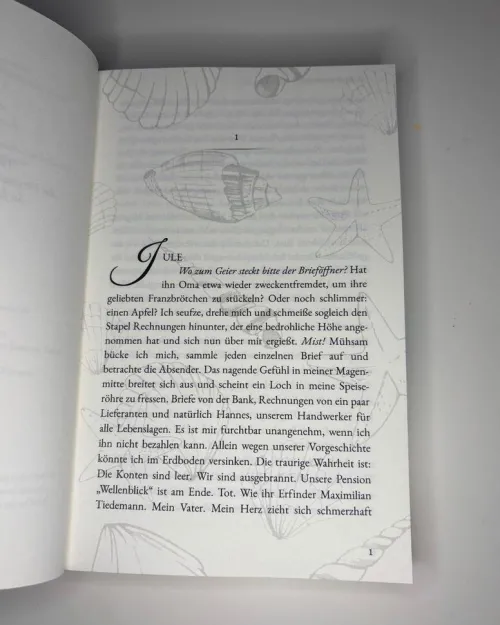 1
JULE
Wo zum Geier steckt bitte der Brieföffner? Hat
ihn Oma etwa wieder zweckentfremdet, um ihre
geliebten Franzbrötchen zu stückeln? Oder noch schlimmer:
einen Apfel? Ich seufze, drehe mich und schmeiße sogleich den
Stapel Rechnungen hinunter, der eine bedrohliche Höhe ange-
nommen hat und sich nun über mir ergießt. Mist! Mühsam
bücke ich mich, sammle jeden einzelnen Brief auf und
betrachte die Absender. Das nagende Gefühl in meiner Magen-
mitte breitet sich aus und scheint ein Loch in meine Speise-
röhre zu fressen. Briefe von der Bank, Rechnungen von ein paar
Lieferanten und natürlich Hannes, unserem Handwerker für
alle Lebenslagen. Es ist mir furchtbar unangenehm, wenn ich
ihn nicht bezahlen kann. Allein wegen unserer Vorgeschichte
könnte ich im Erdboden versinken. Die traurige Wahrheit ist:
Die Konten sind leer. Wir sind ausgebrannt. Unsere Pension
„Wellenblick“ ist am Ende. Tot. Wie ihr Erfinder Maximilian
Tiedemann. Mein Vater. Mein Herz zieht sich schmerzhaft
1